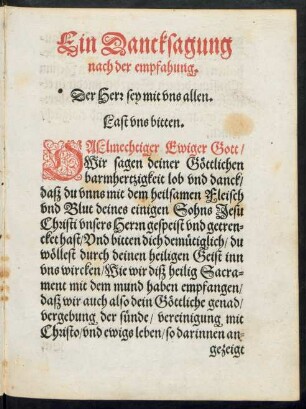 Ein Dancksagung
nach der empfahung.
Der Herr sey mit vns allen.
Last vns bitten.
OAllmechtiger Ewiger Gott/
Wir sagen deiner Göttlichen
barmhertzigkeit lob vnd danck/
daß du vnns mit dem heilsamen Fleisch
vnd Blut deines einigen Sohns Jesu
Christi vnsers Herrn gespeist vnd getren-
cket hast/ Vnd bitten dich demütiglich/ du
wöllest durch deinen heiligen Geist inn
vns wircken/ Wie wir diß heilig Sacra-
ment mit dem mund haben empfangen/
daß wir auch also dein Göttliche genad/
vergebung der sünde/ vereinigung mit
Christo/ vnd ewigs leben/ so darinnen an-
gezeigt